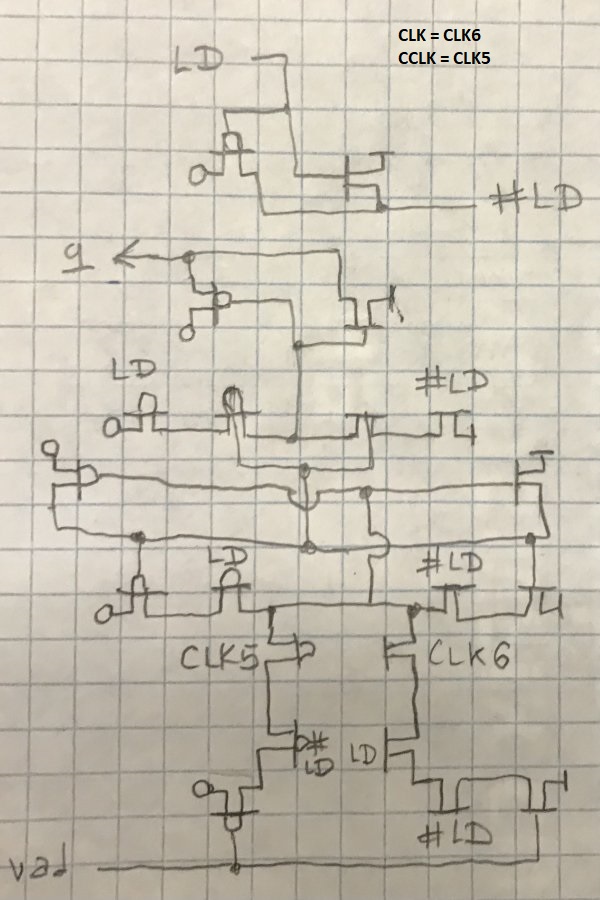 CLK = CLK6
CCLK = CLK5
LD
#LD
q
LD
#LD
LD
#LD
CLK5
CLK6
#
LD
LD
#LD
vad